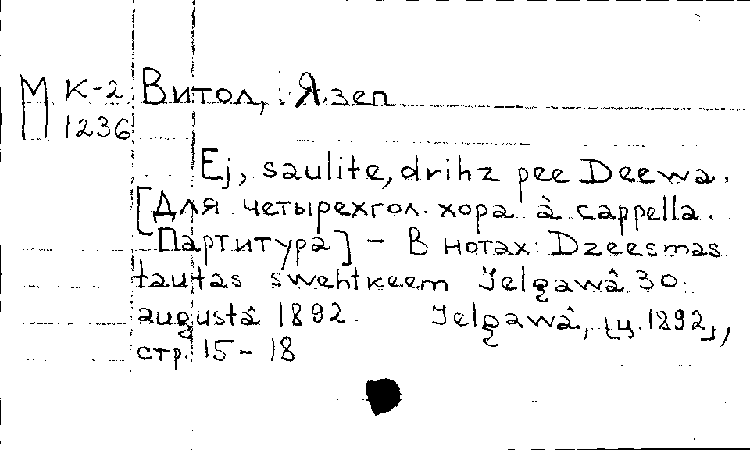 М К-2 Витол, Язеп
П 1236
Ej, saulite, drihz pee Deewa.
[Для четырехгол. хора à cappella.
Партитура] – В нотах: Dzeesmas
tautas swehtkeem Jelgawâ 30.
augustâ 1892. Jelgawâ, [ц. 1892],
стр. 15 – 18